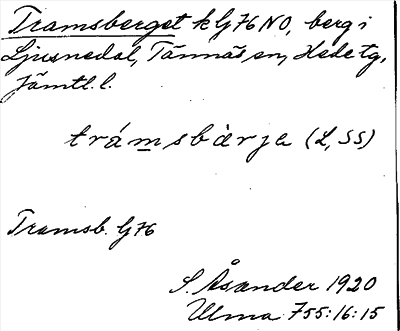 Tramsberget k G76 NO, berg i
Ljusnedal, Tännäs sn, Hede tg,
Jämtl. l.
trámsbàrja (L, SS)
Tramsb. G76
S. Åsander 1920
Ulma 755:16:15